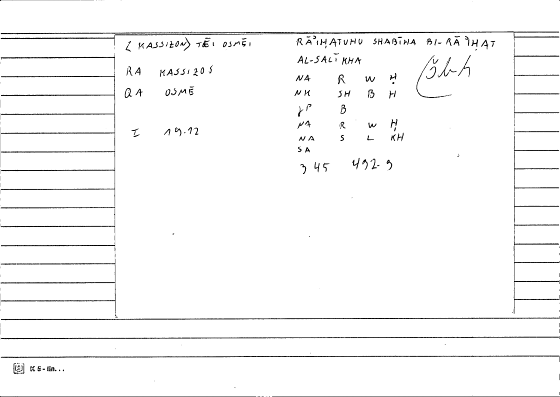 (KASSIZON) TĒI OSMĒI
RA KASSIZOS
QA OSMĒ
I 19.12
RĀʾIḤATUHU SHABĪHA BI-RĀʾIḤAT
AL-SALĪKHA
NA R W Ḥ
NK SH B H
B
NA R W Ḥ
NA S L KH
SA
345 492.9